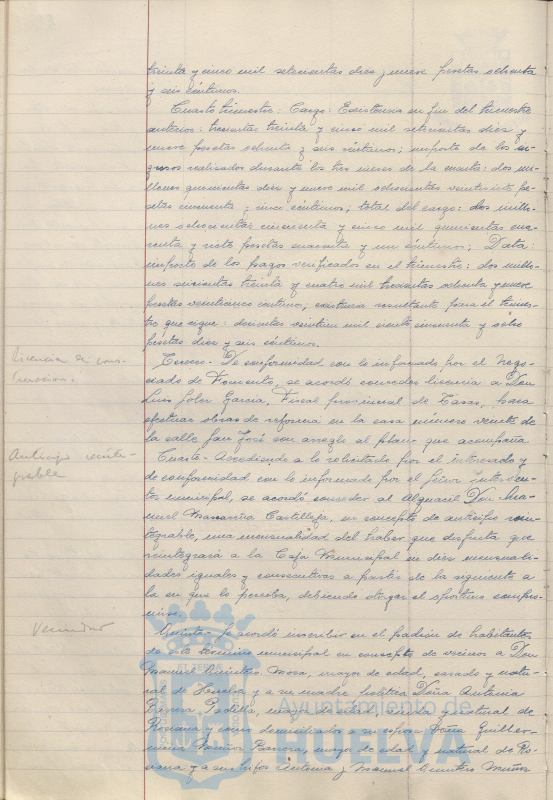 treinta y cinco mil setecientas diez y nueve pesetas ochenta
y seis céntimos.
Cuarto trimestre: Cargo: Existencia en fin del trimestre
anterior: trescientas treinta y cinco mil setecientas diez y
nueve pesetas ochenta y seis céntimos; importe de los in-
gresos realizados durante los tres meses de la cuenta: dos mi-
llones quinientas diez y nueve mil ochocientas veintisiete pe-
setas cincuenta y cinco céntimos; total del cargo: dos millo-
nes ochocientas cincuenta y cinco mil quinientas cua-
renta y siete pesetas cuarenta y un céntimos; Data:
importe de los pagos verificados en el trimestre: dos millo-
nes seiscientas treinta y cuatro mil trescientas ochenta y nueve
pesetas veinticinco céntimos; existencia resultante para el trimes-
tre que sigue: doscientas veintiun mil ciento cincuenta y ocho
pesetas diez y seis céntimos.
Licencia de cons-
trucción.
Tercero.- De conformidad con lo informado por el Nego-
ciado de Fomento, se acordó conceder licencia a Don
Luis Soler García, Fiscal provincial de Tasas, para
efectuar obras de reforma en la casa número veinte de
la calle San José con arreglo al plano que acompaña
Anticipo reinte-
grable
Cuarto.- Accediendo a lo solicitado por el interesado y
de conformidad con lo informado por el Señor Interven-
tor municipal, se acordó conceder al Alguacil Don Ma-
nuel Castilleja, en concepto de anticipo rein-
tegrable, una mensualidad del haber que disfruta que
reintegrará a la Caja Municipal en diez mensuali-
dades iguales y consecutivas a partir de la siguiente a
la en que lo perciba, debiendo otorgar el oportuno compro-
miso.
Vecindad
Quinto.- Se acordó inscribir en el padrón de habitantes
de este término municipal en concepto de vecinos a Don
Manuel Quintero Mora, mayor de edad, casado y natu-
ral de Huelva y a su madre política Doña Antonia
Rivera Padilla, mayor de edad, viuda y natural de
Rociana y como domiciliados a su esposa Doña Guiller-
mina Muñoz mayor de edad y natural de Ro-
ciana y a sus hijos Antonia y Manuel Quintero Muñoz
Ayuntamiento de
HUELVA